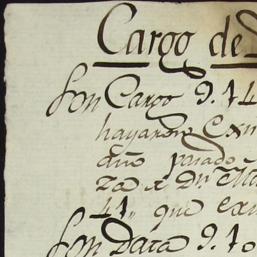 Cargo de
Son Cargo 9.44
hayarono Exn
año pasado
za a Dn. Ma
44,, que exn
Son Data 9.40